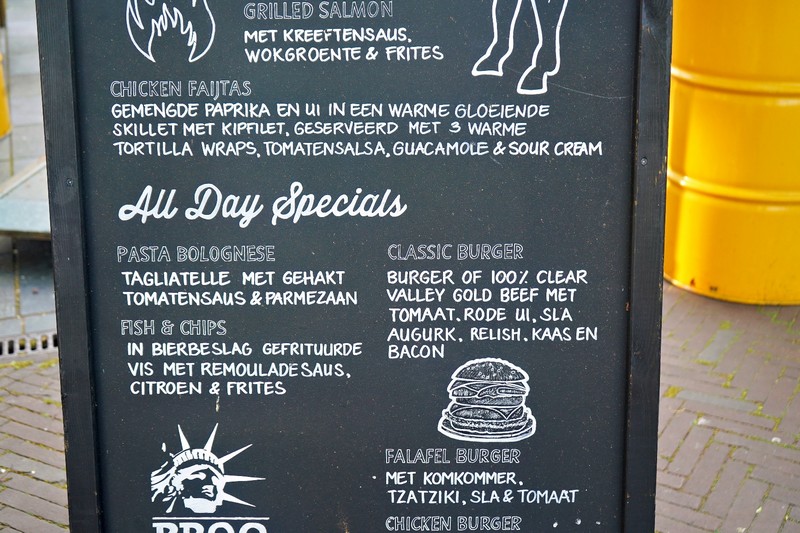 GRILLED SALMON
MET KREEFTENSAUS,
WOKGROENTE & FRITES
CHICKEN FAIJTAS
GEMENGDE PAPRIKA EN UI IN EEN WARME GLOEIENDE
SKILLET MET KIPFILET, GESERVEERD MET 3 WARME
TORTILLA WRAPS, TOMATENSALSA, GUACAMOLE & SOUR CREAM
All Day Specials
PASTA BOLOGNESE
TAGLIATELLE MET GEHAKT
TOMATENSAUS & PARMEZAAN
FISH & CHIPS
IN BIERBESLAG GEFRITUURDE
VIS MET REMOULADESAUS,
CITROEN & FRITES
CLASSIC BURGER
BURGER OF 100% CLEAR
VALLEY GOLD BEEF MET
TOMAAT, RODE UI, SLA
AUGURK, RELISH, KAAS EN
BACON
FALAFEL BURGER
MET KOMKOMMER,
TZATZIKI, SLA & TOMAAT
CHICKEN BURGER